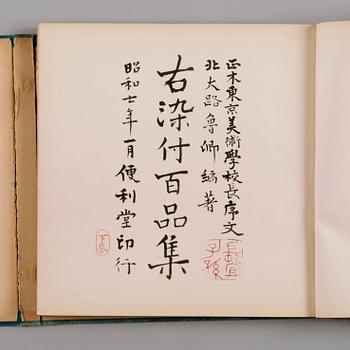 正木東京美術學校長序文
北大路魯卿編著
古染付百品集
昭和七年一月便利堂印行